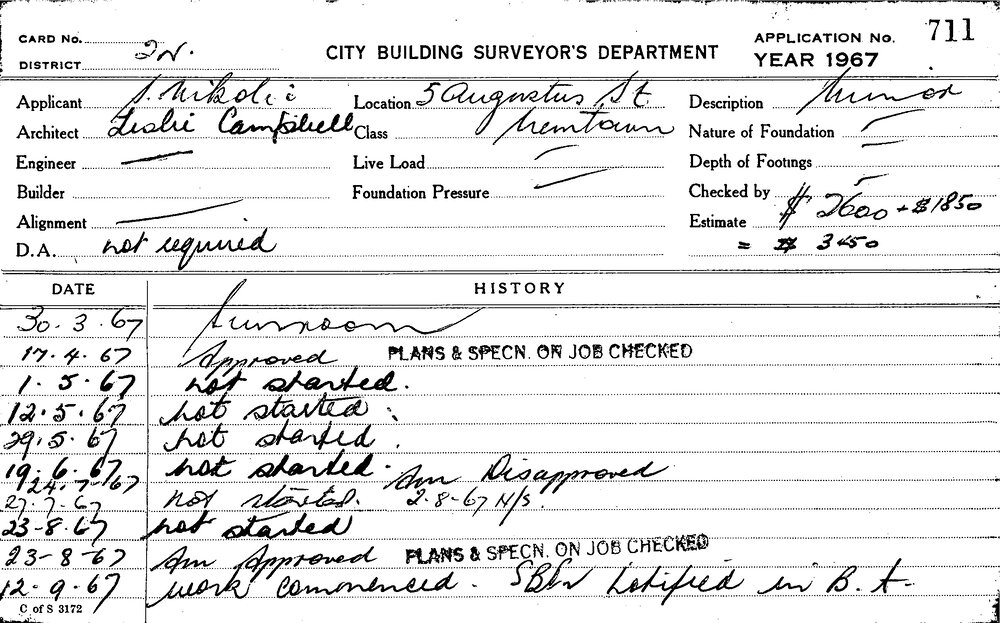 CARD No. 2N. CITY BUILDING SURVEYOR'S DEPARTMENT APPLICATION No. 711
DISTRICT YEAR 1967
Applicant Nikolic Location 5 Augustus St Description Minor
Architect Leslie Campbell Class Newtown Nature of Foundation
Engineer Live Load Depth of Footings
Builder Foundation Pressure Checked by
Alignment Estimate $ 2600 + $1850
D.A. not required = $ 3450
DATE HISTORY
30.3.67 Sunroom
17.4.67 Approved PLANS & SPECN. ON JOB CHECKED
1.5.67 not started.
12.5.67 not started.
29.5.67 not started.
19.6.67 not started.
24.7.67 Am Disapproved
27.7.67 not started. 2-8-67 N/S.
23-8.67 not started
23-8-67 Am Approved PLANS & SPECN. ON JOB CHECKED
12.9.67 work commenced. notified in B.A.
C of S 3172